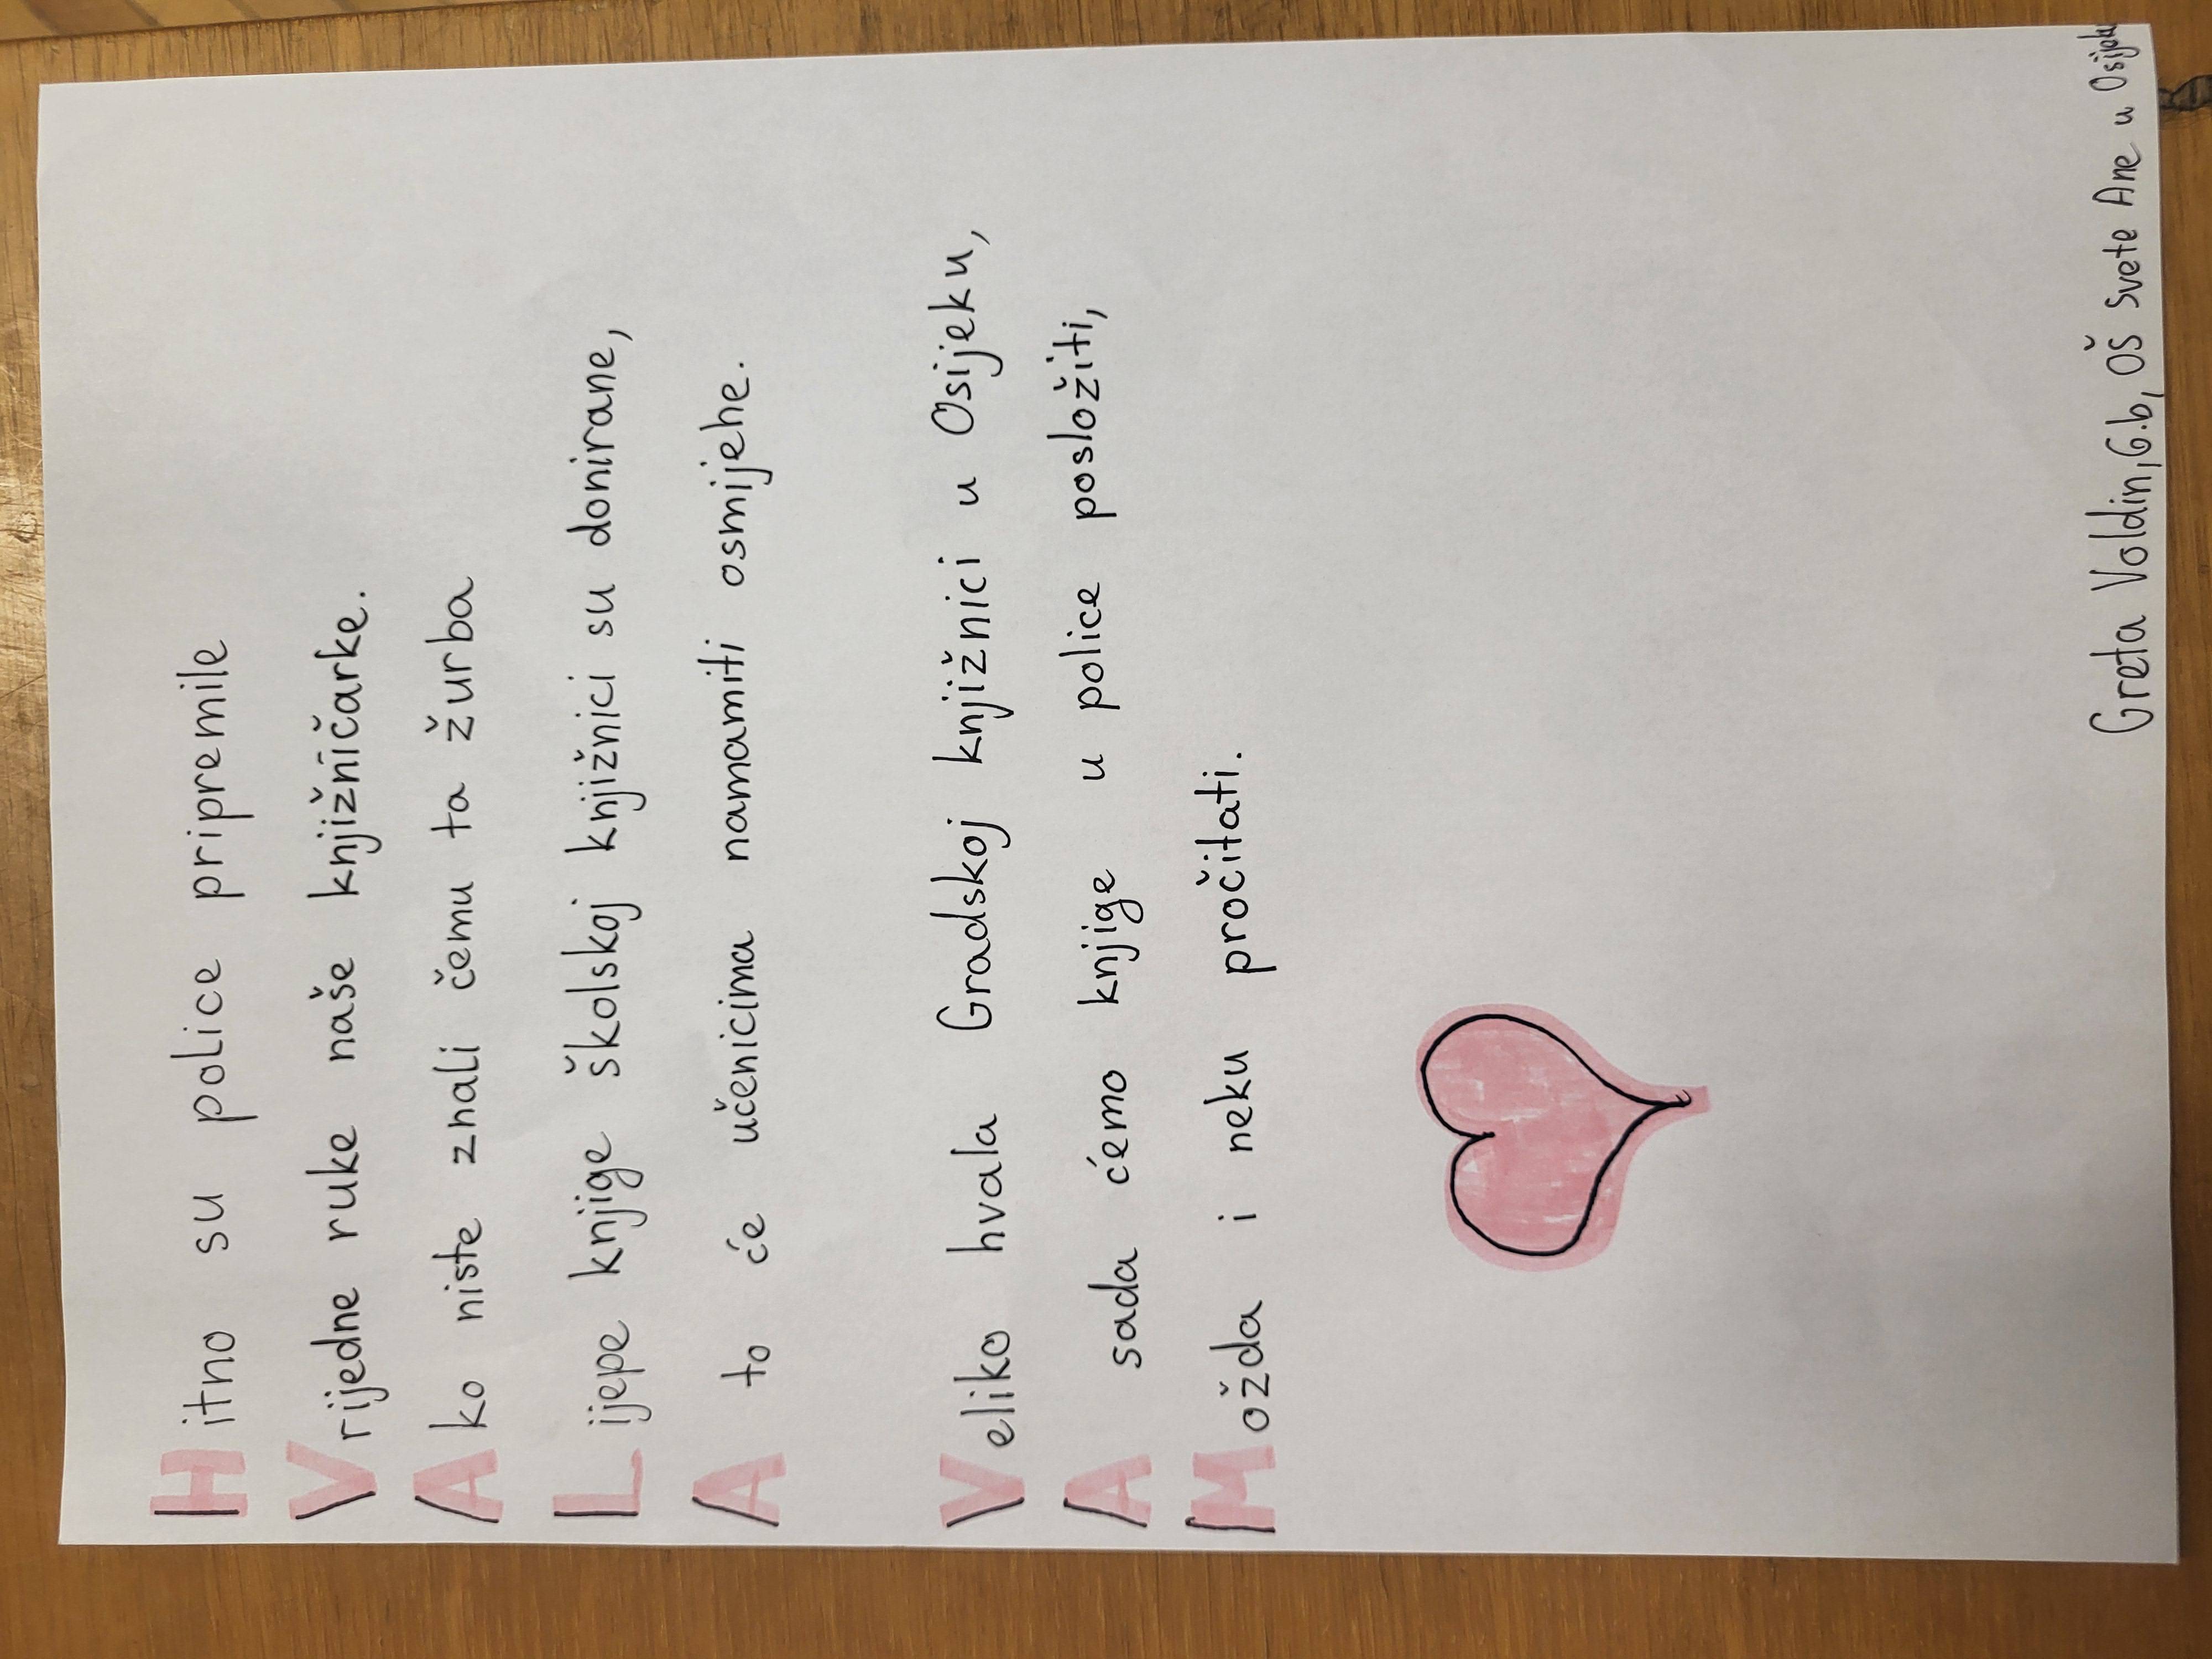 Hitno su police pripremile
Vrijedne ruke naše knjižničarke.
Ako niste znali čemu ta žurba
Lijepe knjige školskoj knjižnici su donirane,
A to će učenicima namamiti osmijehe.
Veliko hvala Gradskoj knjižnici u Osijeku,
A sada ćemo knjige u police posložiti,
Možda i neku pročitati.
Greta Voldin, 6.b, OŠ svete Ane u Osijeku